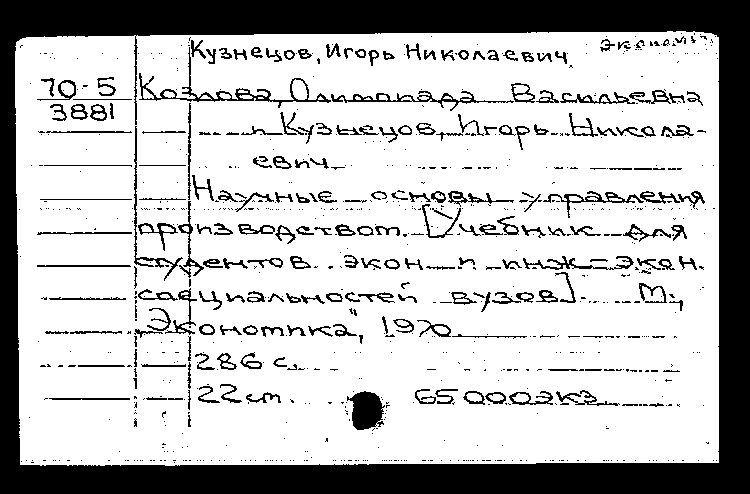 Экономи
Кузнецов, Игорь Николаевич
70-5 Козлова, Олимпиада Васильевна
3881 и Кузнецов, Игорь Никола-
евич
Научные основы управления
производством. [Учебник для
студентов экон. и инж.-экон.
специальностей вузов]. М.,
„Экономика", 1970.
286 с.
22 см. 65 000 экз.